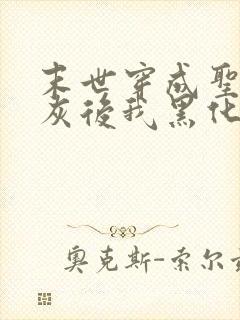 末世穿成聖
灰後我黑化
奧克斯-索尔